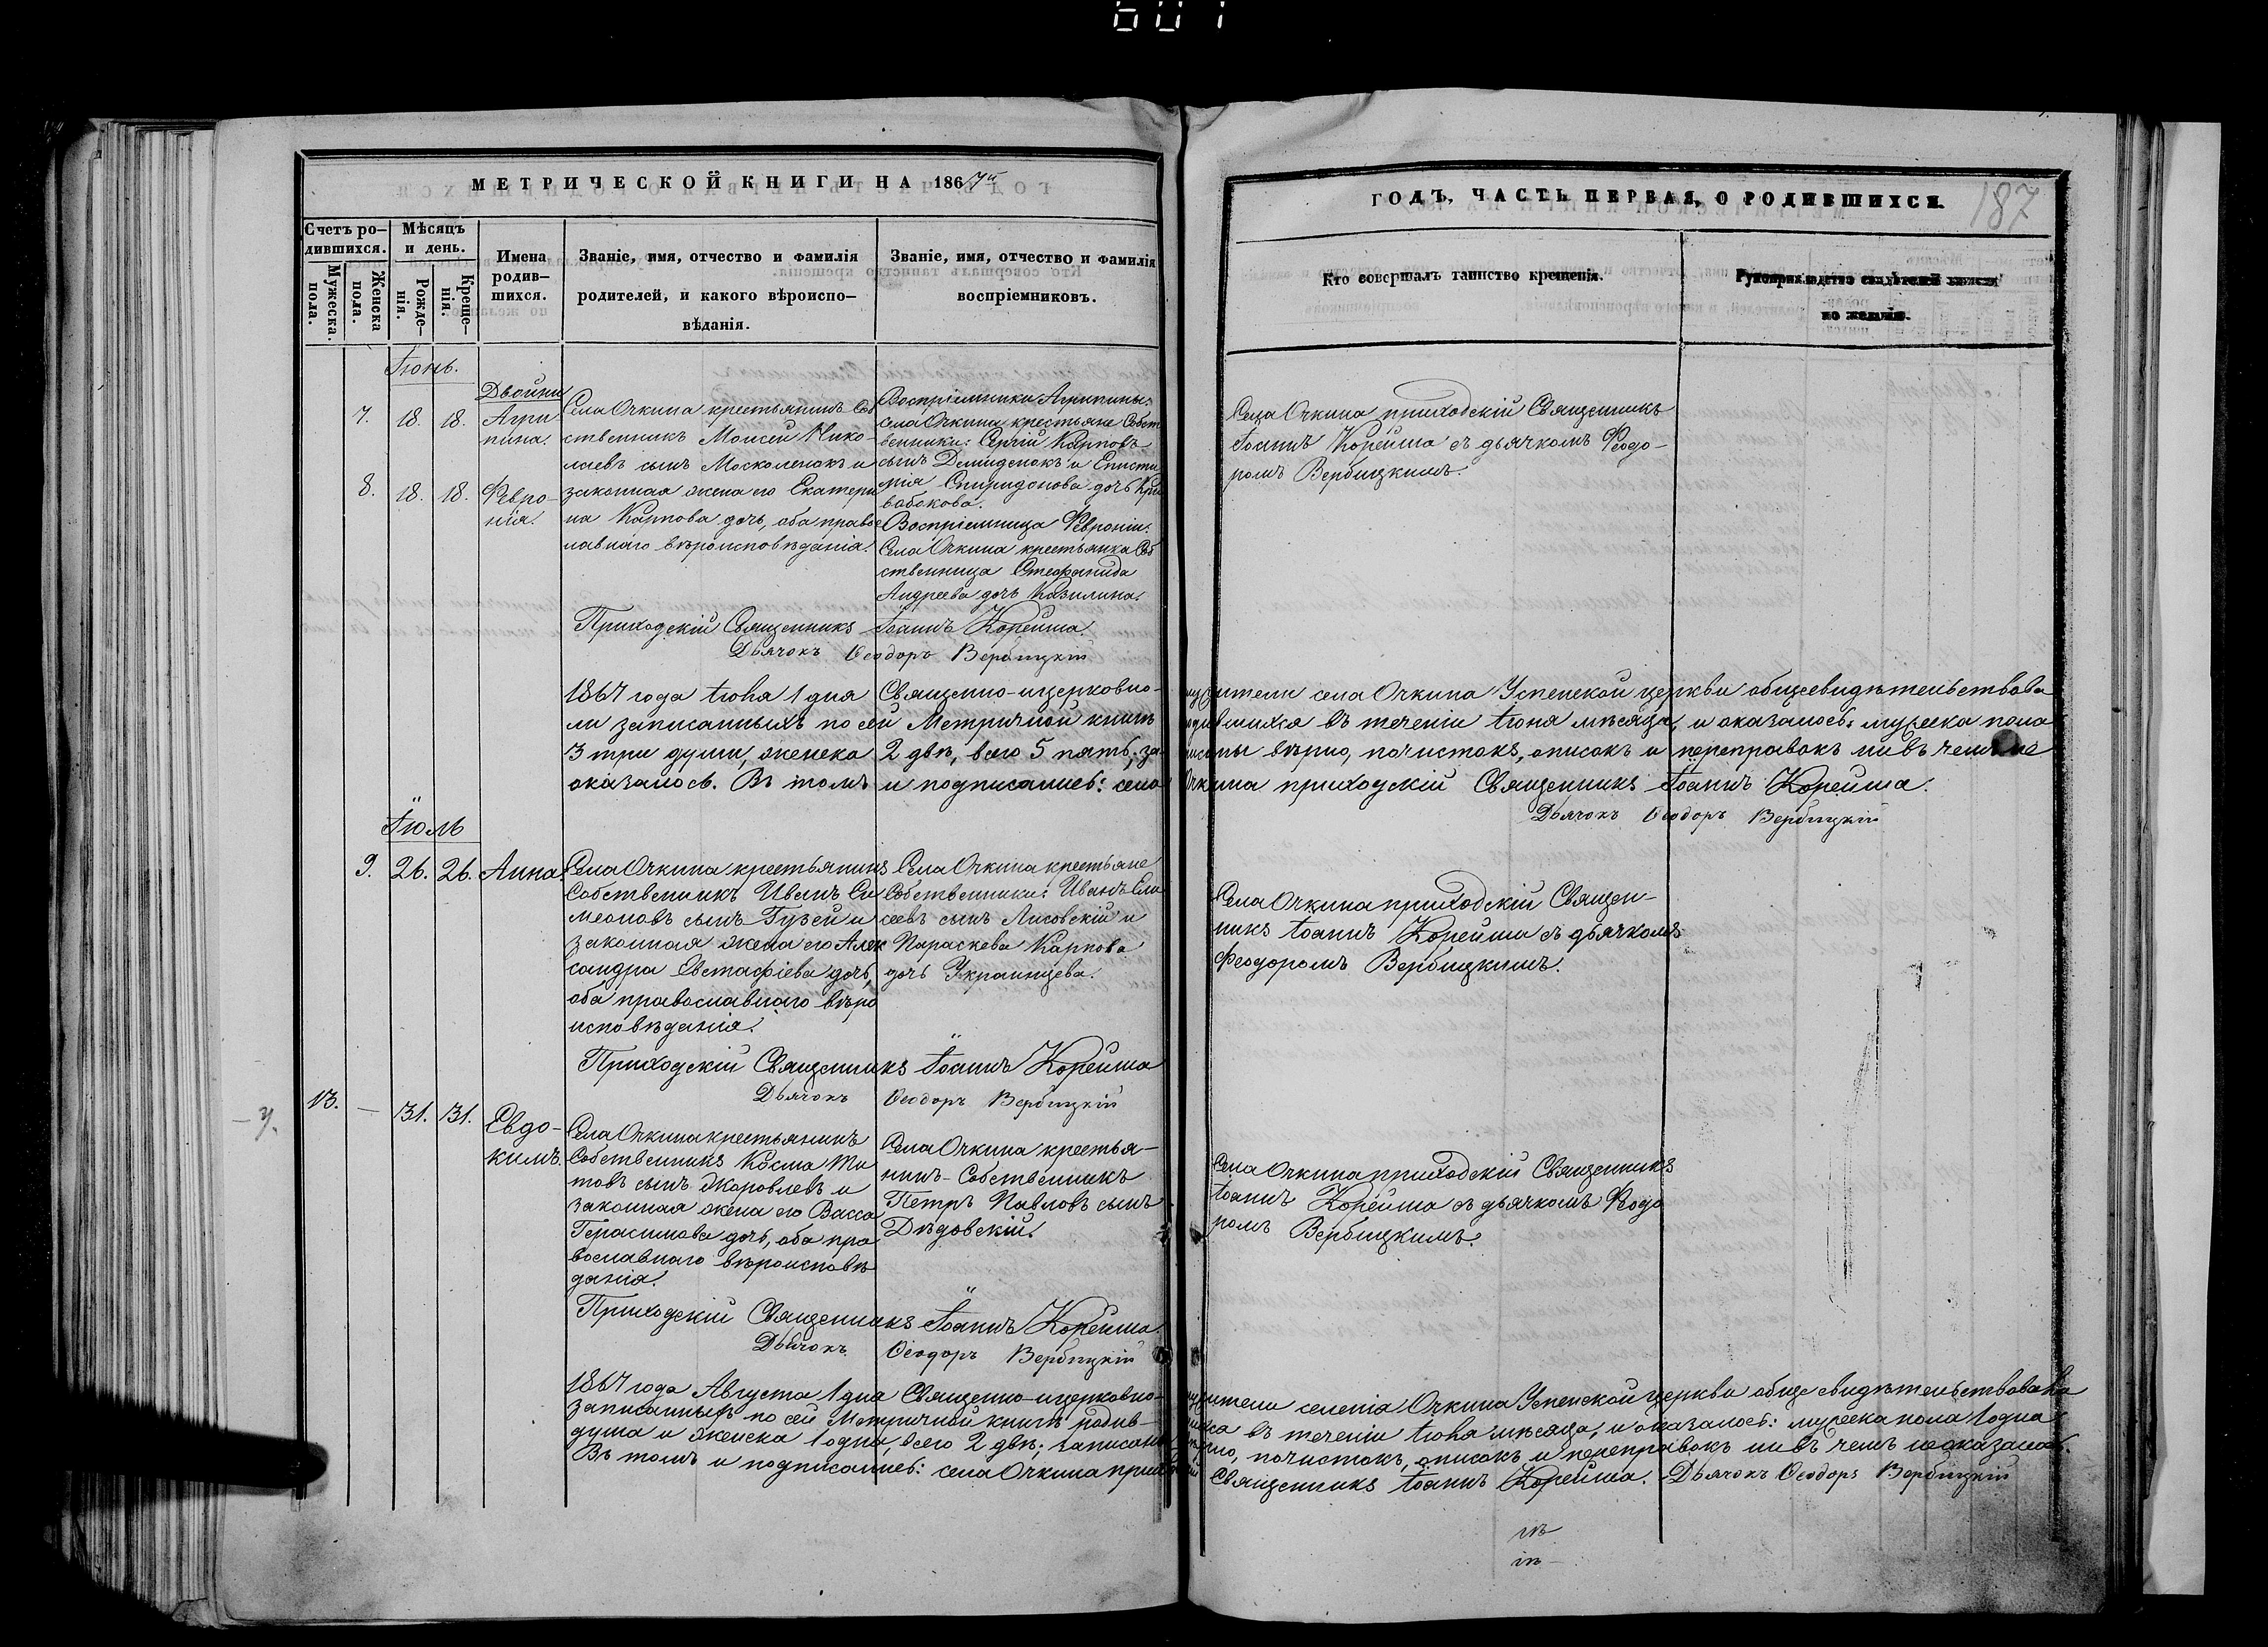 МЕТРИЧЕСКОЙ КНИГИ НА 1867й
Счетъ ро-
дившихся.
Мужеска пола.
Женска пола.
Мѣсяцъ
и день.
Рожде-
нія.
Креще-
нія.
Имена
родив-
шихся.
Званіе, имя, отчество и фамилія
родителей, и какого вѣроиспо-
вѣданія.
Званіе, имя, отчество и фамилія
воспріемниковъ.
Іюнь.
7. 18. 18.
Двойни
Агри
пина.
8. 18. 18.
Февро-
нія.
Села Очкина крестьянинъ Соб
ственникъ Моисей Нико-
лаевъ сынъ Москаленокъ и
законная жена его Екатери
на Карпова дочь, оба правос
лавнаго вѣроисповѣданія.
Воспріемники Агрипины:
села Очкина крестьяне Собст
венники: Сергій Карповъ
сынъ Демиденокъ и Еписти
мія Спиридонова дочь Кри
вобокова.
Воспріемница Февроніи:
Села Очкина крестьянка Соб
ственница Стефанида
Андреева дочь Казилина.
Приходскій Священникъ Іоаннъ Корейша.
Дьячокъ Ѳеодоръ Вербицкій
1867 года Іюня 1 дня Священно-ицерковно-
ли записанныхъ по сей Метричной книгѣ
3 три души, женска 2 двѣ, всего 5 пять; за-
оказалось. Въ томъ и подписались: села
Іюль
9. 26. 26. Анна.
Села Очкина крестьянинъ
Собственникъ Иванъ Си
меоновъ сынъ Гузей и
законная жена его Алек
сандра Евстафіева дочь,
оба православнаго вѣро
исповѣданія.
Села Очкина крестьяне
Собственники: Иванъ Ели
сеевъ сынъ Лисовскій и
Параскева Карпова
дочь Украинцева.
Приходскій Священникъ Іоаннъ Корейша
Дьячокъ Ѳеодоръ Вербицкій
13. — 31. 31.
Евдо-
кимъ.
Села Очкина крестьянинъ
Собственникъ Косма Ти
товъ сынъ Жоровлевъ и
законная жена его Васса
Герасимова дочь, оба пра
вославнаго вѣроисповѣ
данія.
Села Очкина крестья-
нинъ-Собственникъ
Петръ Павловъ сынъ
Дѣдовскій.
Приходскій Священникъ Іоаннъ Корейша.
Дьячокъ Ѳеодоръ Вербицкій
1867 года Августа 1 дня Священно-ицерковно-
записанныхъ по сей Метричной книгѣ родив-
душа и женска 1 одна, всего 2 двѣ; записаны
Въ томъ и подписались: села Очкина приход
ГОДЪ, ЧАСТЬ ПЕРВАЯ, О РОДИВШИХСЯ.
187
Кто совершалъ таинство крещенія.
Рукоприкладство свидѣтелей записи
по желанію.
Села Очкина приходскій Священникъ
Іоаннъ Корейша съ дьячкомъ Феодо-
ромъ Вербицкимъ.
служители села Очкина Успенской церкви общесвидѣтельствова
родившихся въ теченіи Іюня мѣсяца, и оказалось: мужеска пола
писаны вѣрно, почистокъ, описокъ и переправокъ ни въ чемъ не
Очкина приходскій Священникъ Іоаннъ Корейша.
Дьячокъ Ѳеодоръ Вербицкій
Села Очкина приходскій Священ-
никъ Іоаннъ Корейша съ дьячкомъ
Феодоромъ Вербицкимъ.
Села Очкина приходскій Священникъ
Іоаннъ Корейша съ дьячкомъ Феодо
ромъ Вербицкимъ.
служители селенія Очкина Успенской церкви обще свидѣтельствовали
въ теченіи Іюня мѣсяца, и оказалось: мужеска пола 1 одна
вѣрно, почистокъ, описокъ и переправокъ ни въ чемъ неоказалось.
Священникъ Іоаннъ Корейша. Дьячокъ Ѳеодоръ Вербицкій